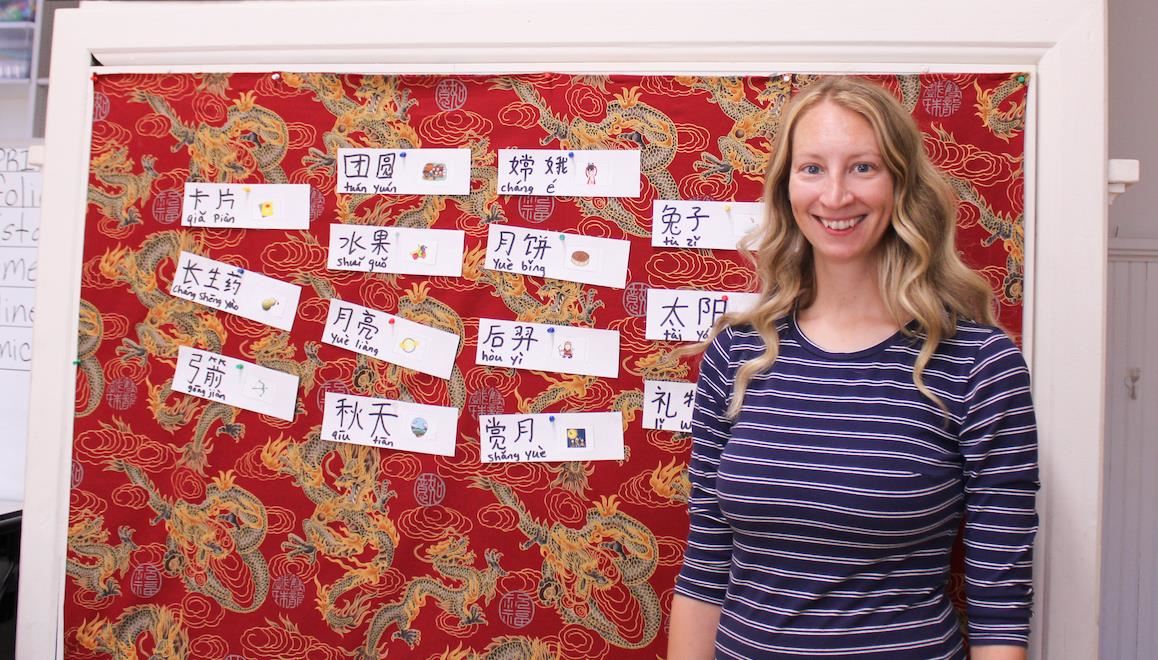 卡片
qiǎ Piàn
长生药
cháng shēng yào
弓箭
gōng jiàn
团圆
tuán yuán
水果
shuǐ guǒ
月亮
yuè liàng
秋天
qīu tiān
嫦娥
cháng é
月饼
Yuè bǐng
后羿
hòu yì
赏月
shǎng yuè
兔子
tù zǐ
太阳
tài
礼
lǐ